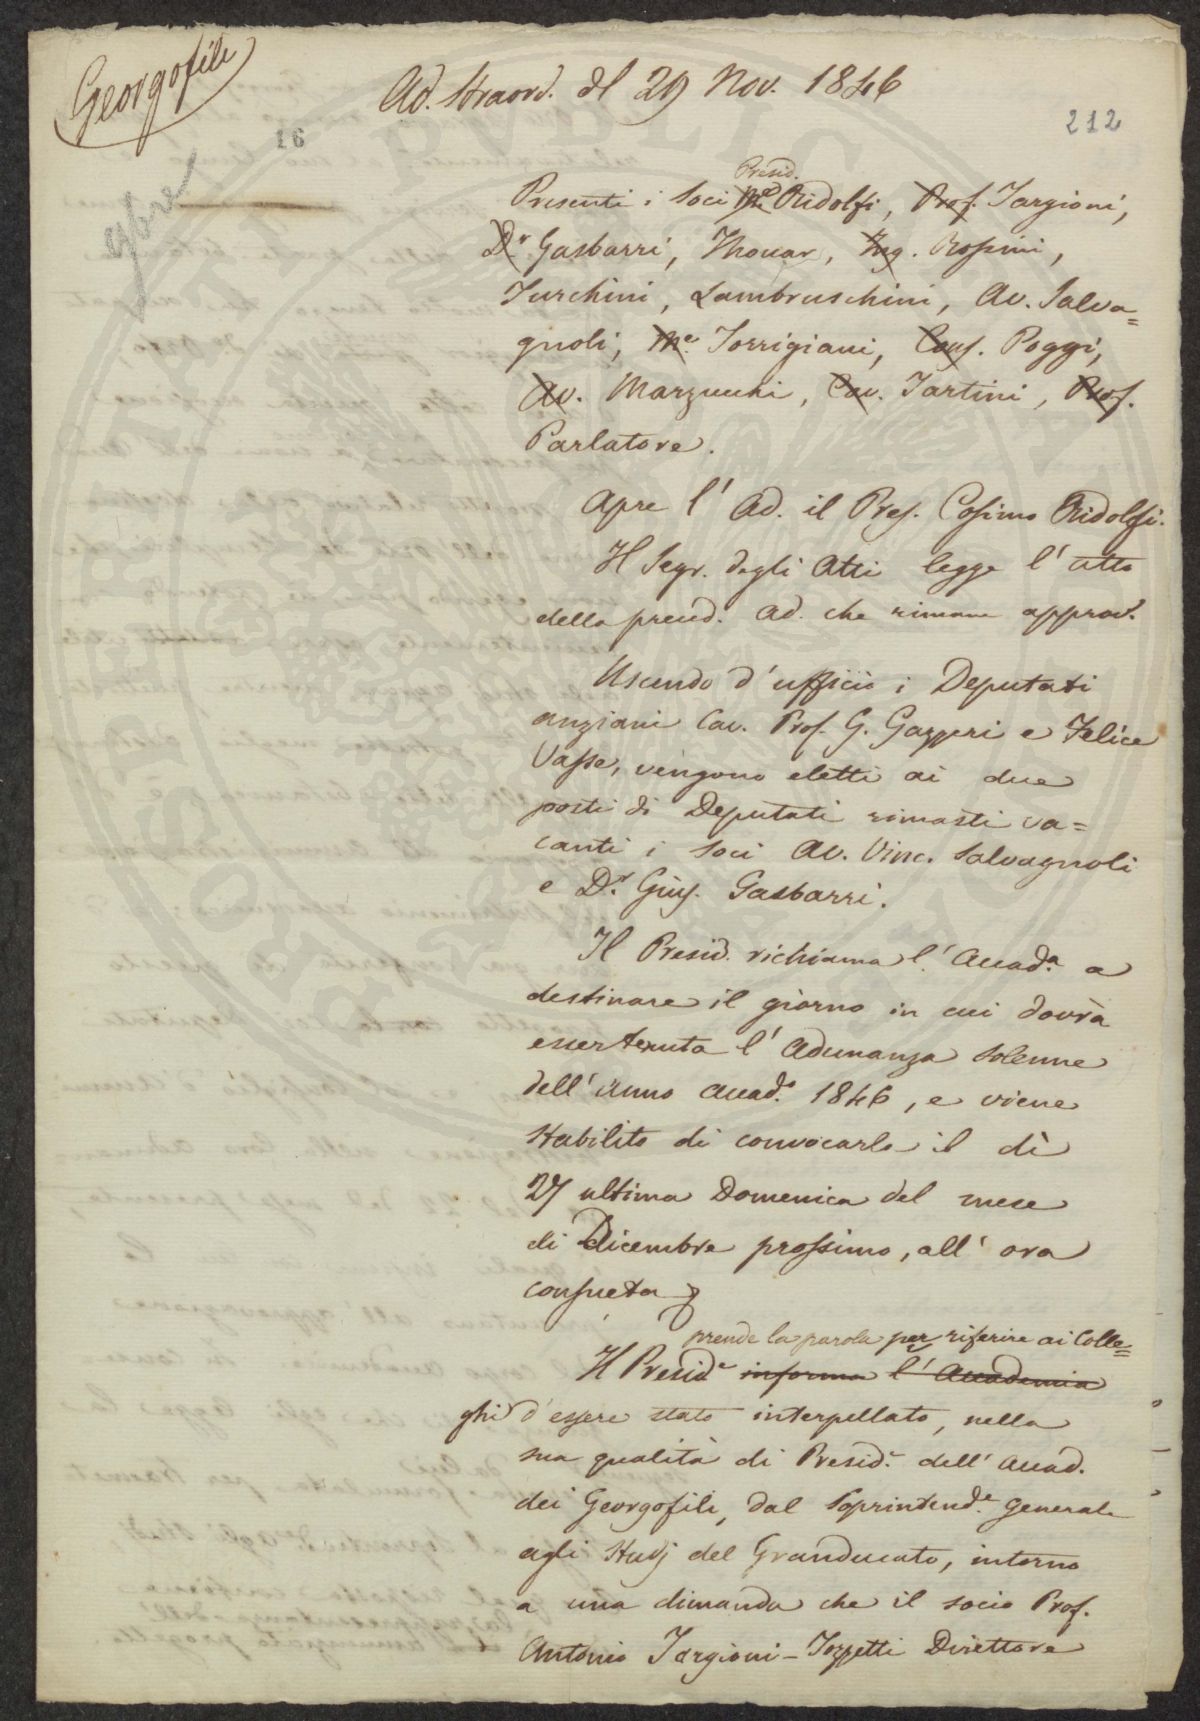 Georgofili
Ad. straord. dl 29 Nov. 1846
16
212
Presid.
Presenti i Soci Me. Ridolfi, Prof. Targioni,
Dr. Gasbarri, Thouar, Ing. Rossini,
Turchini, Lambruschini, Av. Salva=
gnoli, Me. Torrigiani, Cons. Poggi,
Av. Marzucchi, Cav. Tartini, Prof.
Parlatore.
Apre l' Ad. il Pres. Cosimo Ridolfi.
Il Segr. degli Atti legge l' atto
della preced. Ad. che rimane approv.
Uscendo d'uffiçio i Deputati
anziani Cav. Prof. G. Gazzeri e Felice
Vasse, vengono eletti ai due
posti di Deputati rimasti va=
canti i soci Av. Vinc. Salvagnoli
e Dr. Gius. Gasbarri.
Il Presid. richiama l' Accad.a a
destinare il giorno in cui dovrà
esser tenuta l' Adunanza solenne
dell' anno accad.o 1846, e viene
stabilito di convocarla il dì
27 ultima Domenica del mese
di Dicembre prossimo, all' ora
consueta
prende la parola per riferire ai Colle=
Il Presid.e informa l' Accademia
ghi d'essere stato interpellato, nella
sua qualità di Presid.e dell' Accad.
dei Georgofili, dal Soprintend.e generale
agli Studj del Granducato, intorno
a una dimanda che il socio Prof.
Antonio Targioni-Tozzetti Direttore